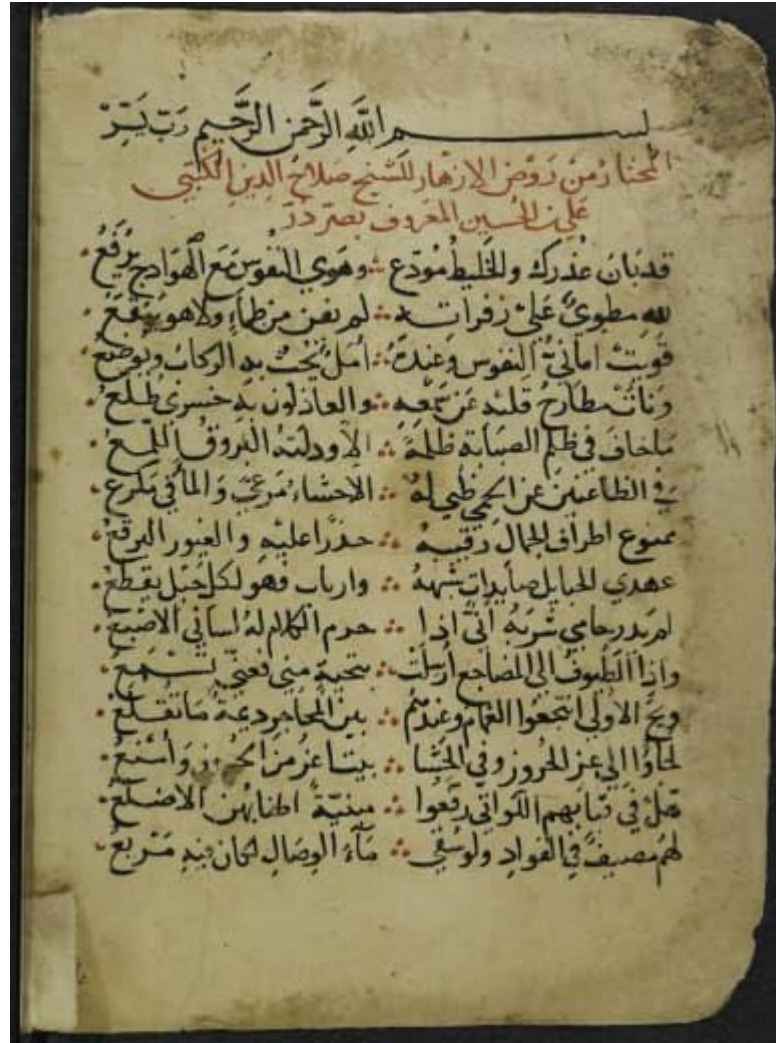 بسم الله الرحمن الرحيم رب يسر
المختار من روض الازهار للشيخ صلاح الدين الكتبي
علي بن الحسين المعروف بصردر
قد بان عذرك والخليط مودع وهوي النفوس مع الهوادج يرفع
لله مطوي على زفراته لم يغن من ظماء ولا هو ينقع
قويت اماني النفوس وعنده امل تحث به الركاب وتوضع
ونات مطارح قلبه عن سمعه والعاذلون به حسري ظلع
ماخاف في ظلم الصبابة ظلة الا ودلته البروق اللمع
في الظاعنين عن الحمي ظبي له الاحشاء مرعي والمآقي مكرع
ممنوع اطراف الجمال رقيبه حذرا عليه والغيور البرقع
عهدي الحبايل صايدات شبهه وارتاب فهو لكل حبل يقطع
لم يدر حامي سربه أني اذا حرم الكلام له لساني الاصبع
واذا الطيوف الي المضاجع أرسلت بتحية مني فعيني تسمع
ويح الاولي انتجعوا الغمام وعندهم بين المحاجر ديمة ما تقلع
لجاؤا الي عز الحروز وفي الحشا بيتا عز من الحروز وأمنع
هل في قبابهم اللواتي رفعوا مبنية اطنابهن الاضلع
لهم مصيف في الفواد ولو سقي مآء الوصال لكان فيه مربع